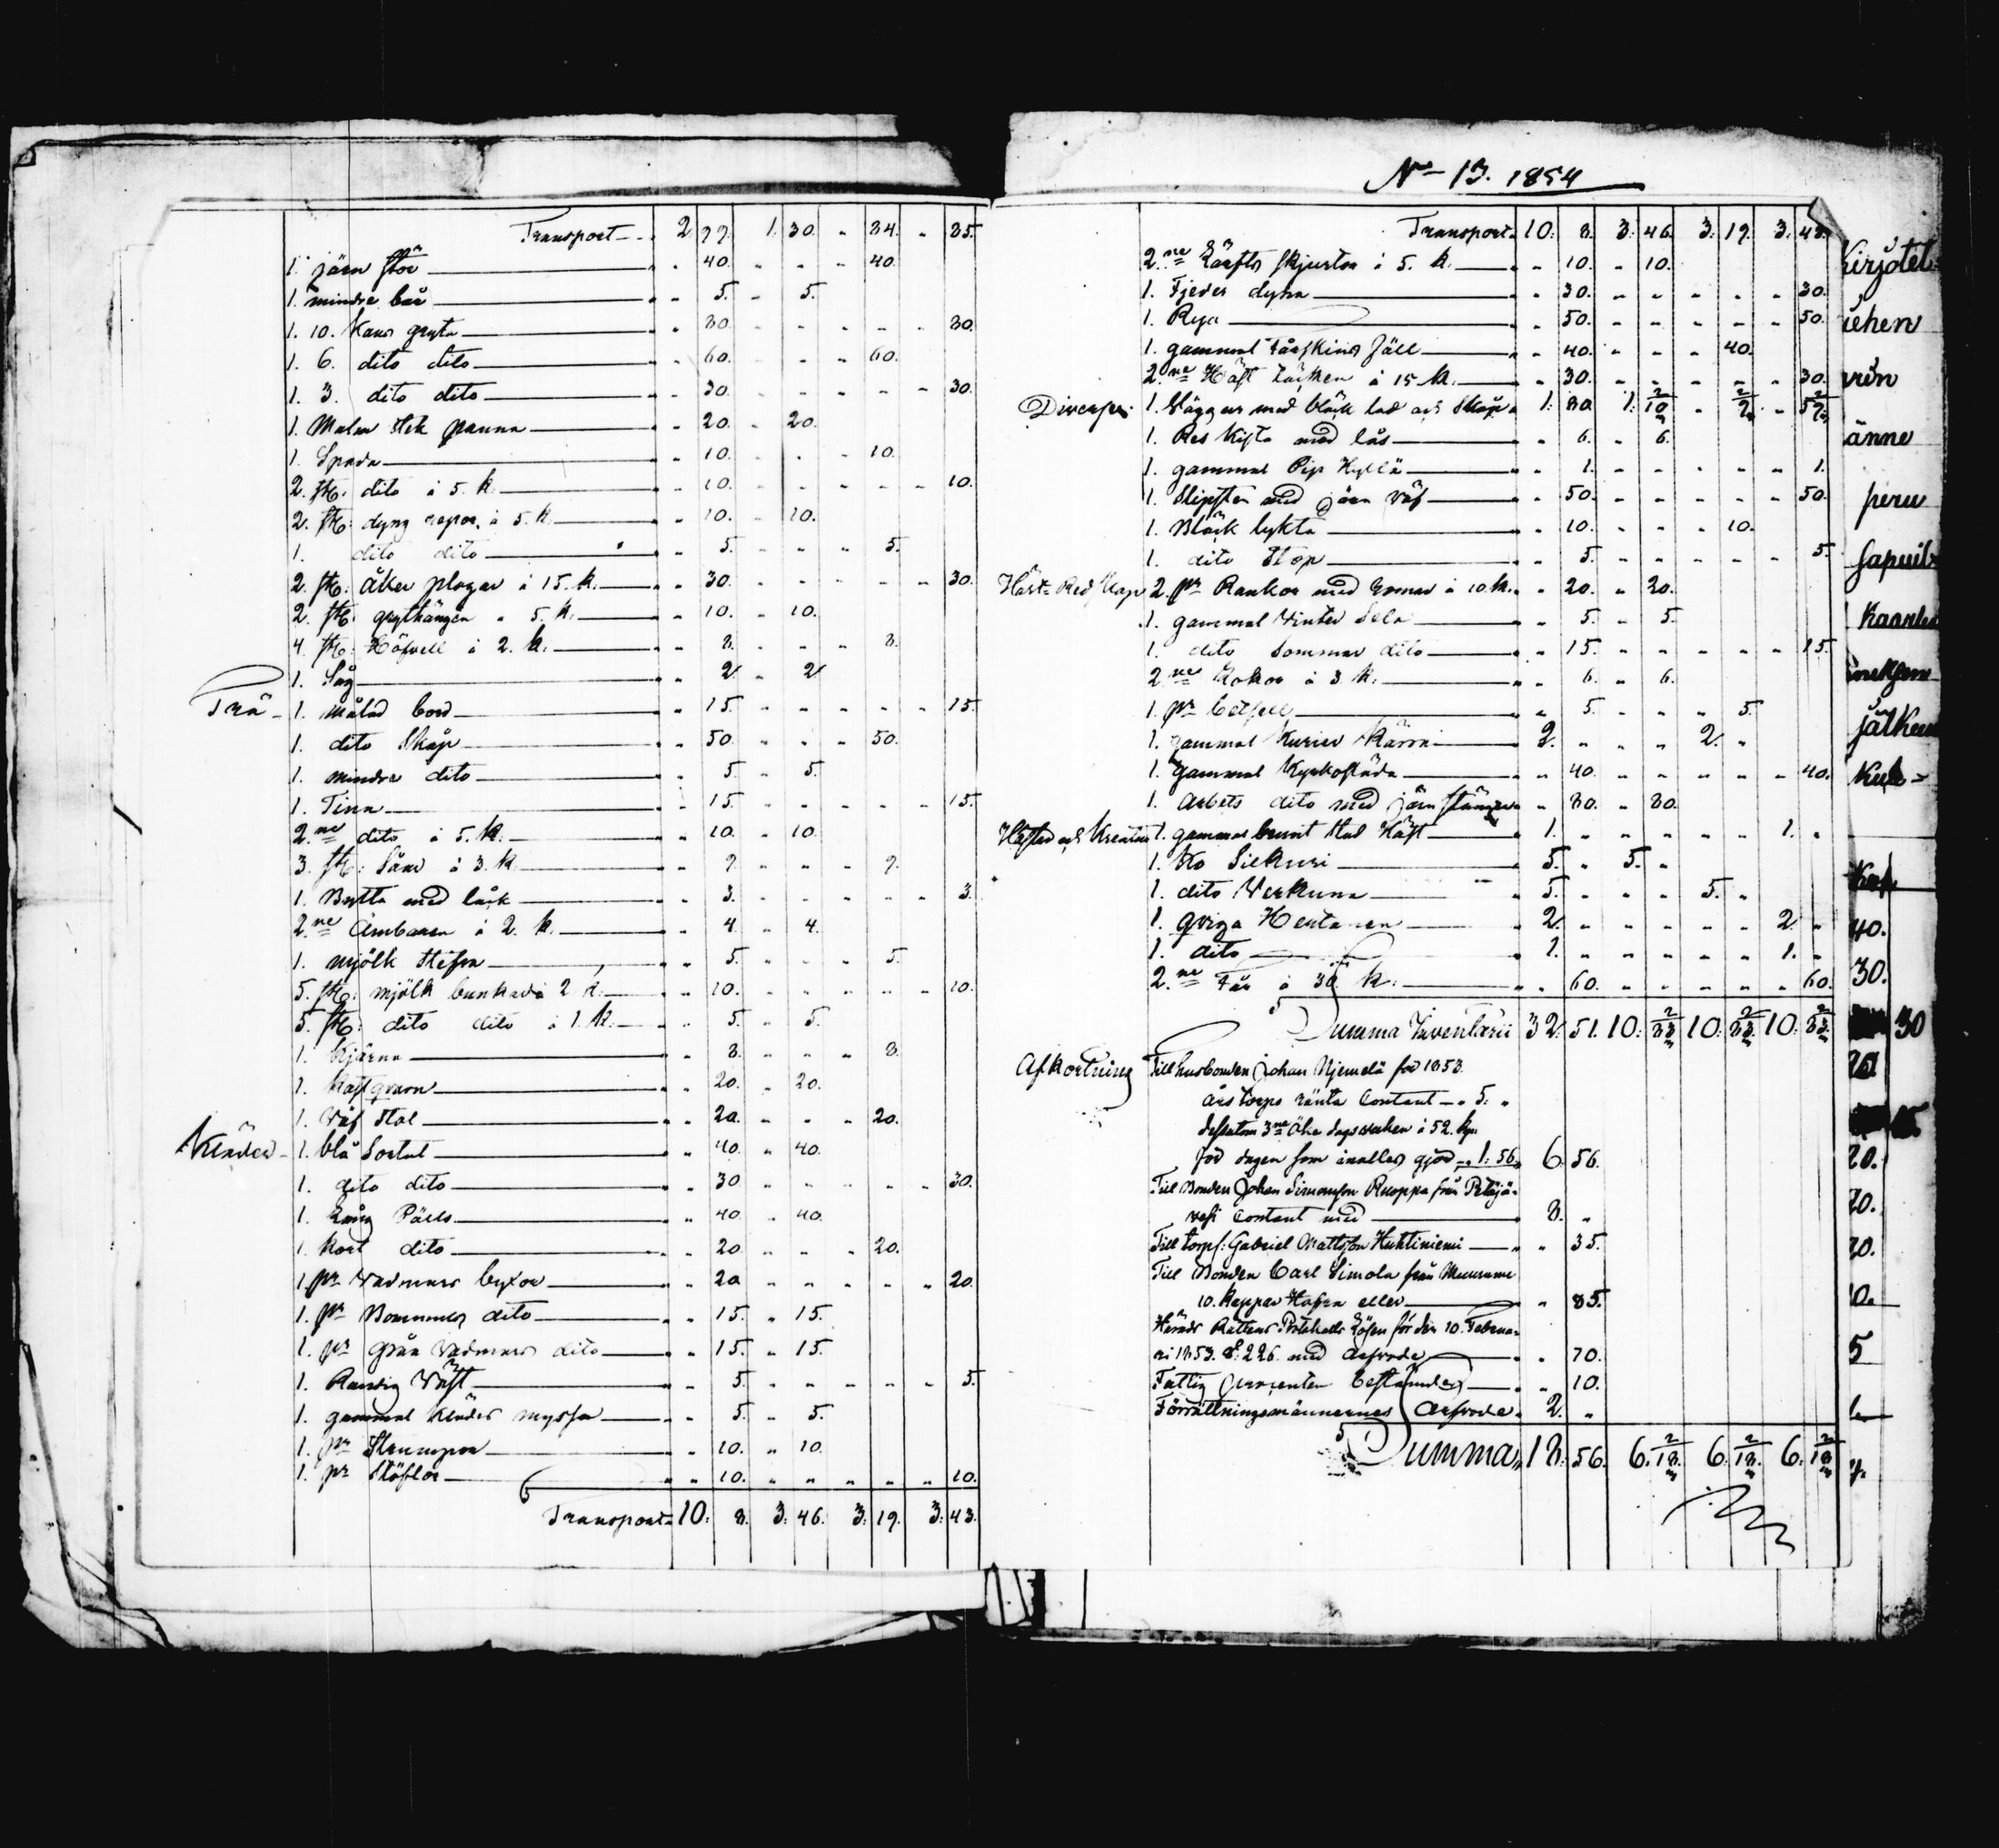 Transport 2 99. 1. 30. " 34. " 35.
1. järn stör " 40. " " " 40.
1. mindre bår " 5. " 5.
1. 10. Kans gryta " 30. " " " " " 30.
1. 6. dito dito " 60. " " " 60.
1. 3. dito dito " 30. " " " " " 30.
1. Malm stek panna " 20. " 20.
1. Spada " 10. " " " 10.
2. st: dito á 5. k. " 10. " " " " " 10.
2. st: dyng á 5. k. " 10. " 10.
1. dito dito " 5. " " " 5.
2. st: åker plogar á 15. k. " 30. " " " " " 30.
2. st: grythängen " 5. k. " 10. " 10.
4. st: á 2. k. " 8. " " " 8.
1. Såg " 2 " 2
Trä 1. målad bord " 15. " " " " " 15.
1. dito Skåp " 50. " " " 50.
1. mindre dito " 5. " 5.
1. Tina " 15. " " " " " 15.
2.ne dito á 5. k. " 10. " 10.
3. st: Såar á 3. k. " 9. " " " 9.
1. Bytta med låck " 3. " " " " " 3.
2.ne Ämbaren á 2. k. " 4. " 4.
1. mjölk Stefva " 5. " " " 5.
5. st: mjölk bunkar á 2 k. " 10. " " " " " 10.
5. st: dito dito á 1. k. " 5. " 5.
1. Kjärna " 8. " " " 8.
1. Kaf qvarn " 20. " 20.
1. Väf Stol " 20. " " " 20.
Kläder 1. blå Sortut " 40. " 40.
1. dito dito " 30 " " " " " 30.
1. Lång Päls " 40. " 40.
1. Kort dito " 20. " " " 20.
1. pr Vadmars byxor " 20 " " " " " 20.
1. pr Bommuls dito " 15. " 15.
1. pr gråa Vadmars dito " 15. " 15.
1. Randig Väst " 5. " " " " " 5.
1. gammal Kläder myssa " 5. " 5.
1. pr Strumpor " 10. " 10.
1. pr Stöflor " 10. " " " " " 10.
Transport 10: 8. 3: 46. 3: 19. 3: 43.
No 13. 1854
Transport 10: 8. 3: 46. 3: 19. 3: 43.
2.ne Lärfts skjortor á 5. k. " 10. " 10.
1. Fjeder dyna " 30. " " " " " 30.
1. Rya " 50. " " " " " 50.
1. gammal Fårskins fäll " 40. " " " 40.
2.ne Häst täcken á 15 k. " 30. " " " " " 30.
Diverse. 1. Väggur med bläck lod och Skåp 1: 80.
1. Res Kista med lås " 6. " 6.
1. gammal Pip Hyllä " 1. " " " " " 1.
1. Slipsten med järn väf " 50. " " " " " 50.
1. Bläck lykta " 10. " " " 10.
1. dito Stop " 5. " " " " " 5.
Häst Redskap 2. pr Rankor med á 10. k. " 20. " 20.
1. gammal Vinter Sela " 5. " 5.
1. dito Sommar dito " 15. " " " " " 15.
2.ne Lokor á 3. k. " 6. " 6.
1. pr betsell " 5. " " " 5.
1. gammal Kurier Kärra 2. " " " 2. "
1. gammal Kyrkosläda " 40. " " " " " 40.
1. Arbets dito med järn " 80. " 80.
Hästar och Kreatur 1. gammal brunt Häst 1. " " " " " 1. "
1. Ko Siekuri 5. " 5. "
1. dito Verkuna 5. " " " 5. "
1. qviga Hertanen 2. " " " " " 2 "
1. dito 1. " " " " " 1. "
2.ne Får á 30. k. " 60. " " " " " 60.
Summa Inventarii 32 51. 10: 10: 10:
Afkortning Till husbonden Johan Njemelä för 1853
års torps ränta Contant " 5. "
dessutom 3ne Öke dagsverken á 52. kp.
för dagen som inalles gjör " 1. 56 " 6. 56.
Till Bonden Johan Simonson Ruoppa från Petäjä-
vesi Contant med 8. "
Till torp: Gabriel Mattsson Huhtiniemi " 35.
Till Bonden Carl Simola från Muurame
10. kappar Hafra eller " 85.
Härads Rättens Protokolls Lösen för den 10. Februa-
ri 1853. §. 226. med Arfvode " 70.
Fattig procenten bestämdes " 10.
Förrättningsmännernes Arfvode 2. "
Summa 18. 56. 6. 6. 6.